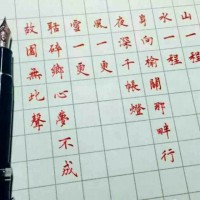 山一程
水一程
身向榆關那畔行
夜深千帳燈
風一更
雪一更
聒碎鄉心夢不成
故園無此聲